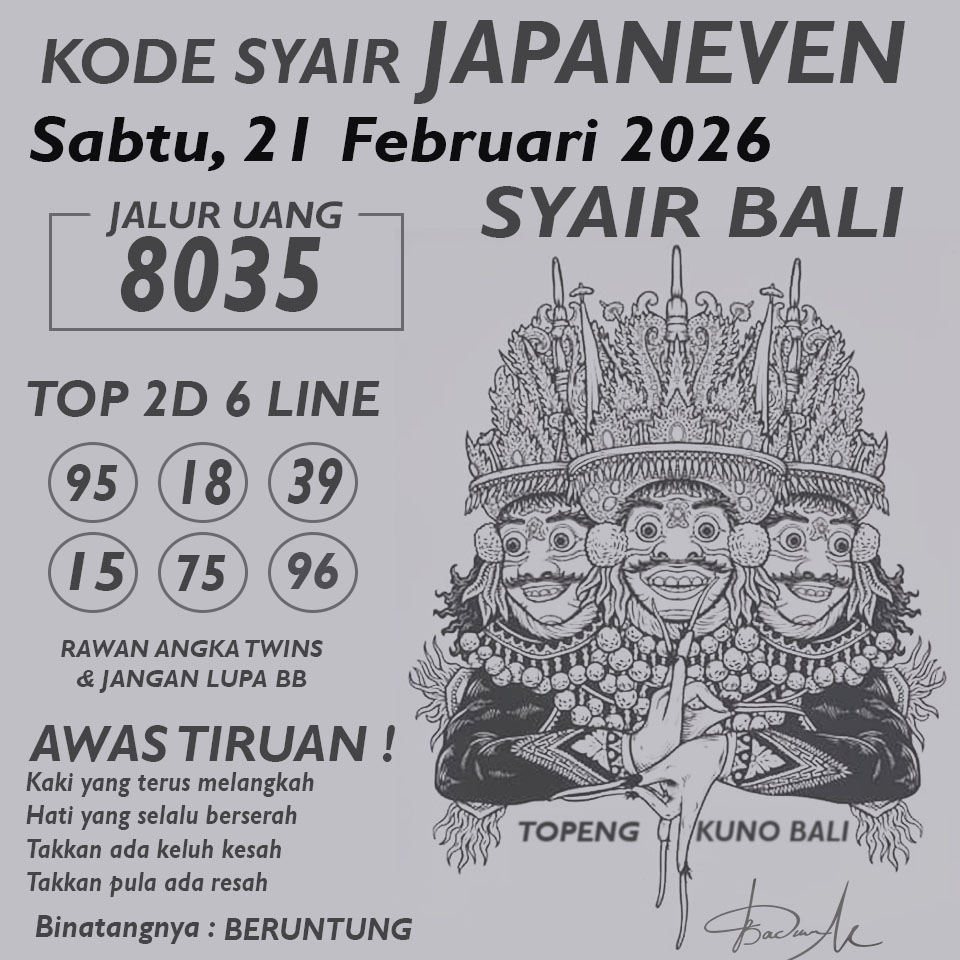 KODE SYAIR JAPANEVEN
Sabtu, 21 Februari 2026
SYAIR BALI
JALUR UANG
8035
TOP 2D 6 LINE
95 18 39
15 75 96
RAWAN ANGKA TWINS
& JANGAN LUPA BB
AWAS TIRUAN !
Kaki yang terus melangkah
Hati yang selalu berserah
Takkan ada keluh kesah
Takkan pula ada resah
TOPENG KUNO BALI
Binatangnya : BERUNTUNG